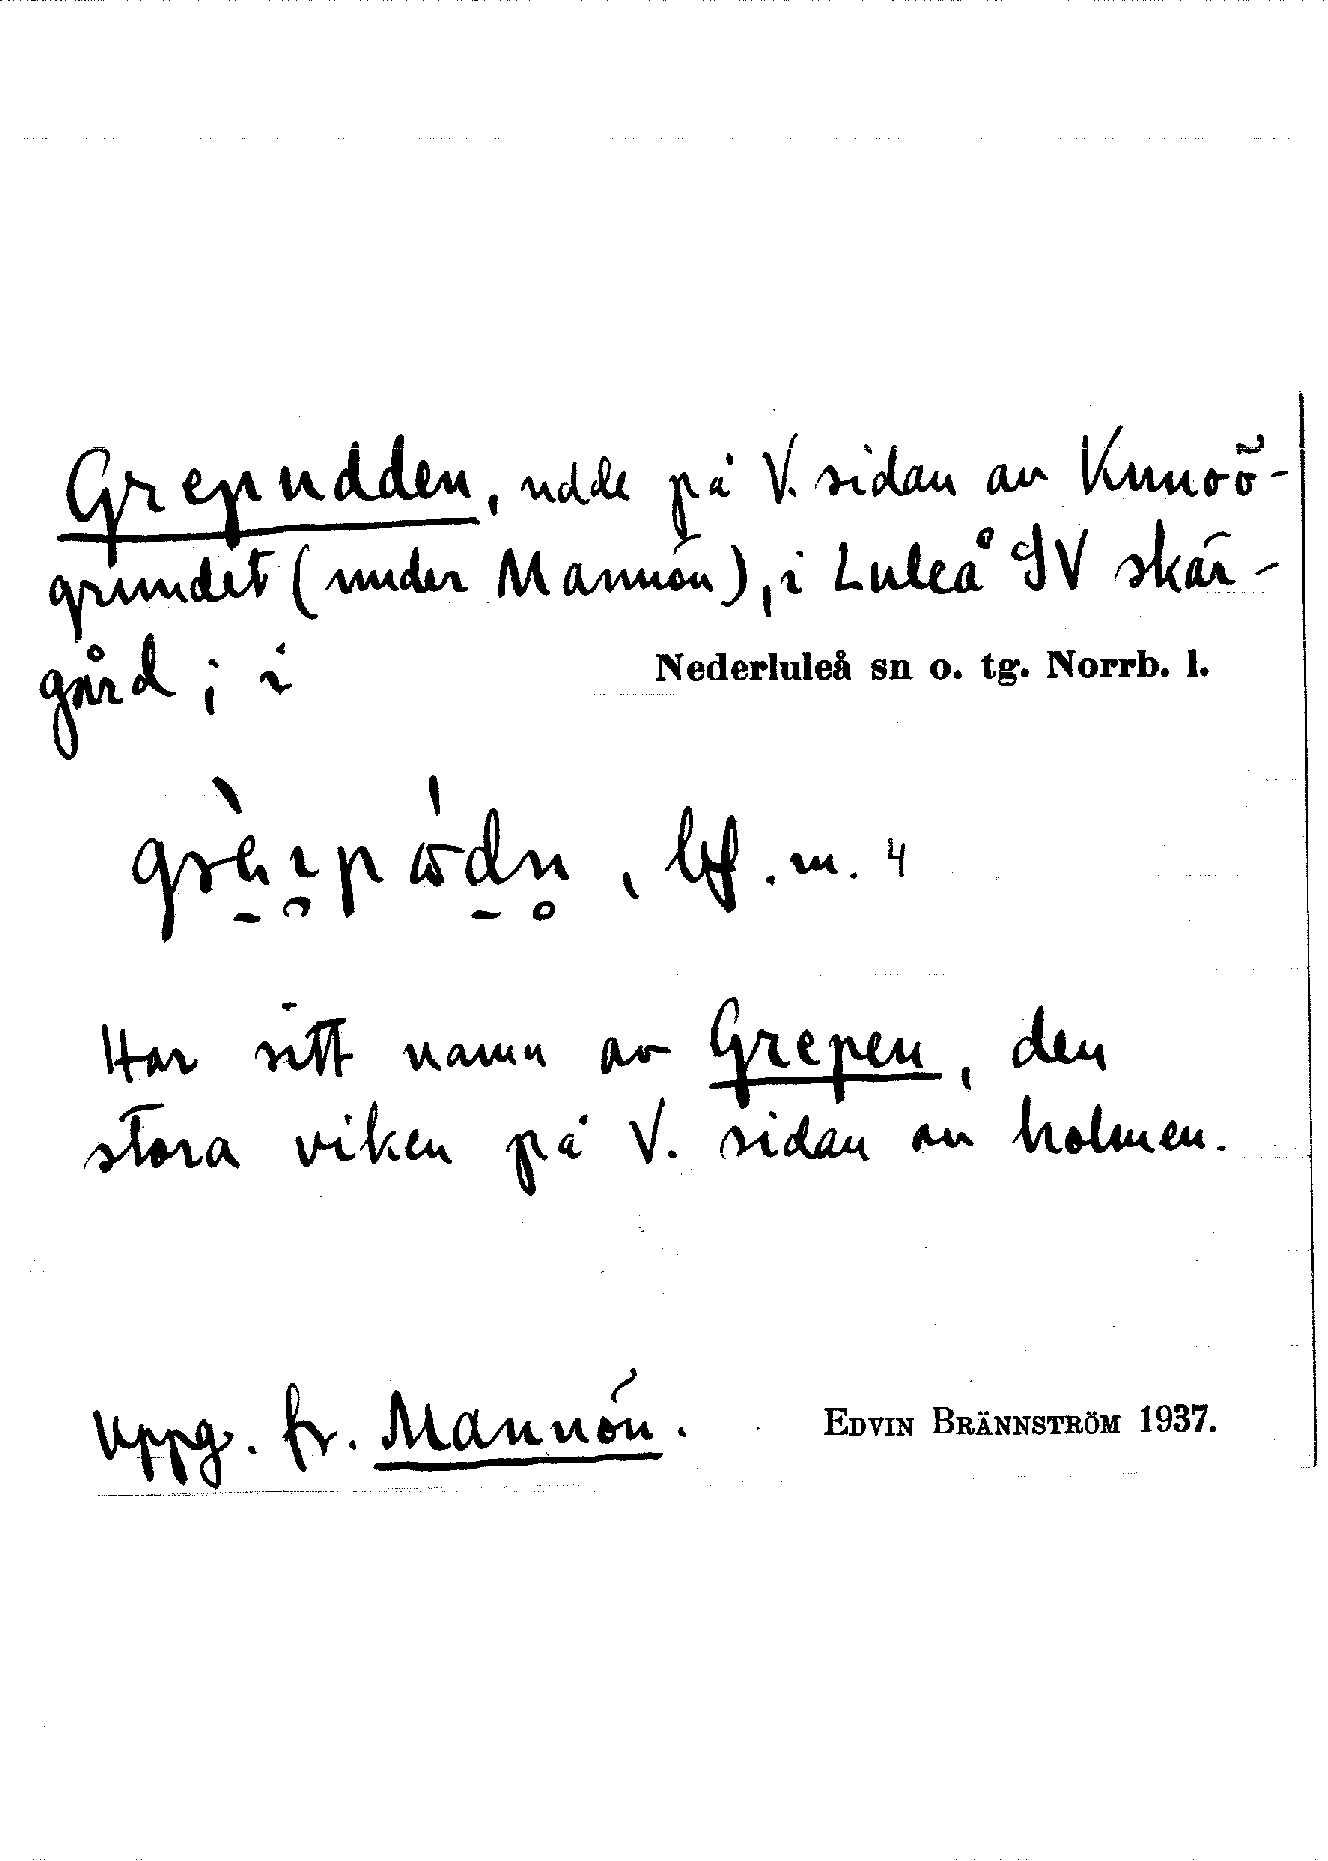 Grepudden, udde på V. sidan av Knusö-
grundet (under Mannön), i Luleå SV skär-
gård; i Nederluleå sn o. tg. Norrb. l.
bf. m. 4
Har sitt namn av Grepen, den
stora viken på V. sidan av holmen.
Uppg. fr. Mannön. EDVIN BRÄNNSTRÖM 1937.